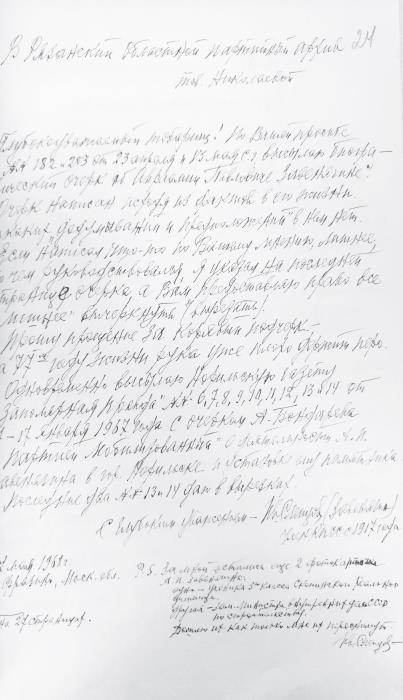 В Рязанский областной партийный архив 24
тов. Николаевой
Глубокоуважаемый товарищ! По Вашей просьбе
№№ 182 и 253 от 23 апреля и 13 мая с/г высылаю биогра-
фический очерк об Авраамии Павловиче Завенягине.
Очерк написал исходя из фактов в его жизни.
Никаких "додумываний и предположений" в нем нет.
Если написал что-то по Вашему мнению лишнее,
чем руководствовался я указал на последней
странице очерка, а Вам предоставляю право все
"лишнее" вычеркнуть (вырезать).
Прошу прощение за корявый подчерк-
на 77ом году жизни рука уже плохо держит перо.
Одновременно высылаю Норильскую газету
"Заполярная правда" №№ 6,7,8,9,10,11,12,13 и 14 от
17 января 1967 года с очерком А. Бондарева
"Партией мобилизованный" о деятельности А.П.
Завенягина в гор. Норильске и установке ему памятника.
Последние два №№ 13 и 14 даю в вырезках.
С глубоким уважением-
член КПСС с 1917 года
мая 1969 г.
Моск. обл.
на 27 страницах.
P.S. За мной остались еще 2 фотокарточки
А.П. Завенягина:
одна - ученика 5го класса Скопинского реального
училища
другая - Зам. Министра внутренних дел СССР
по строительству.
Вышлю их как только мне их переснимут